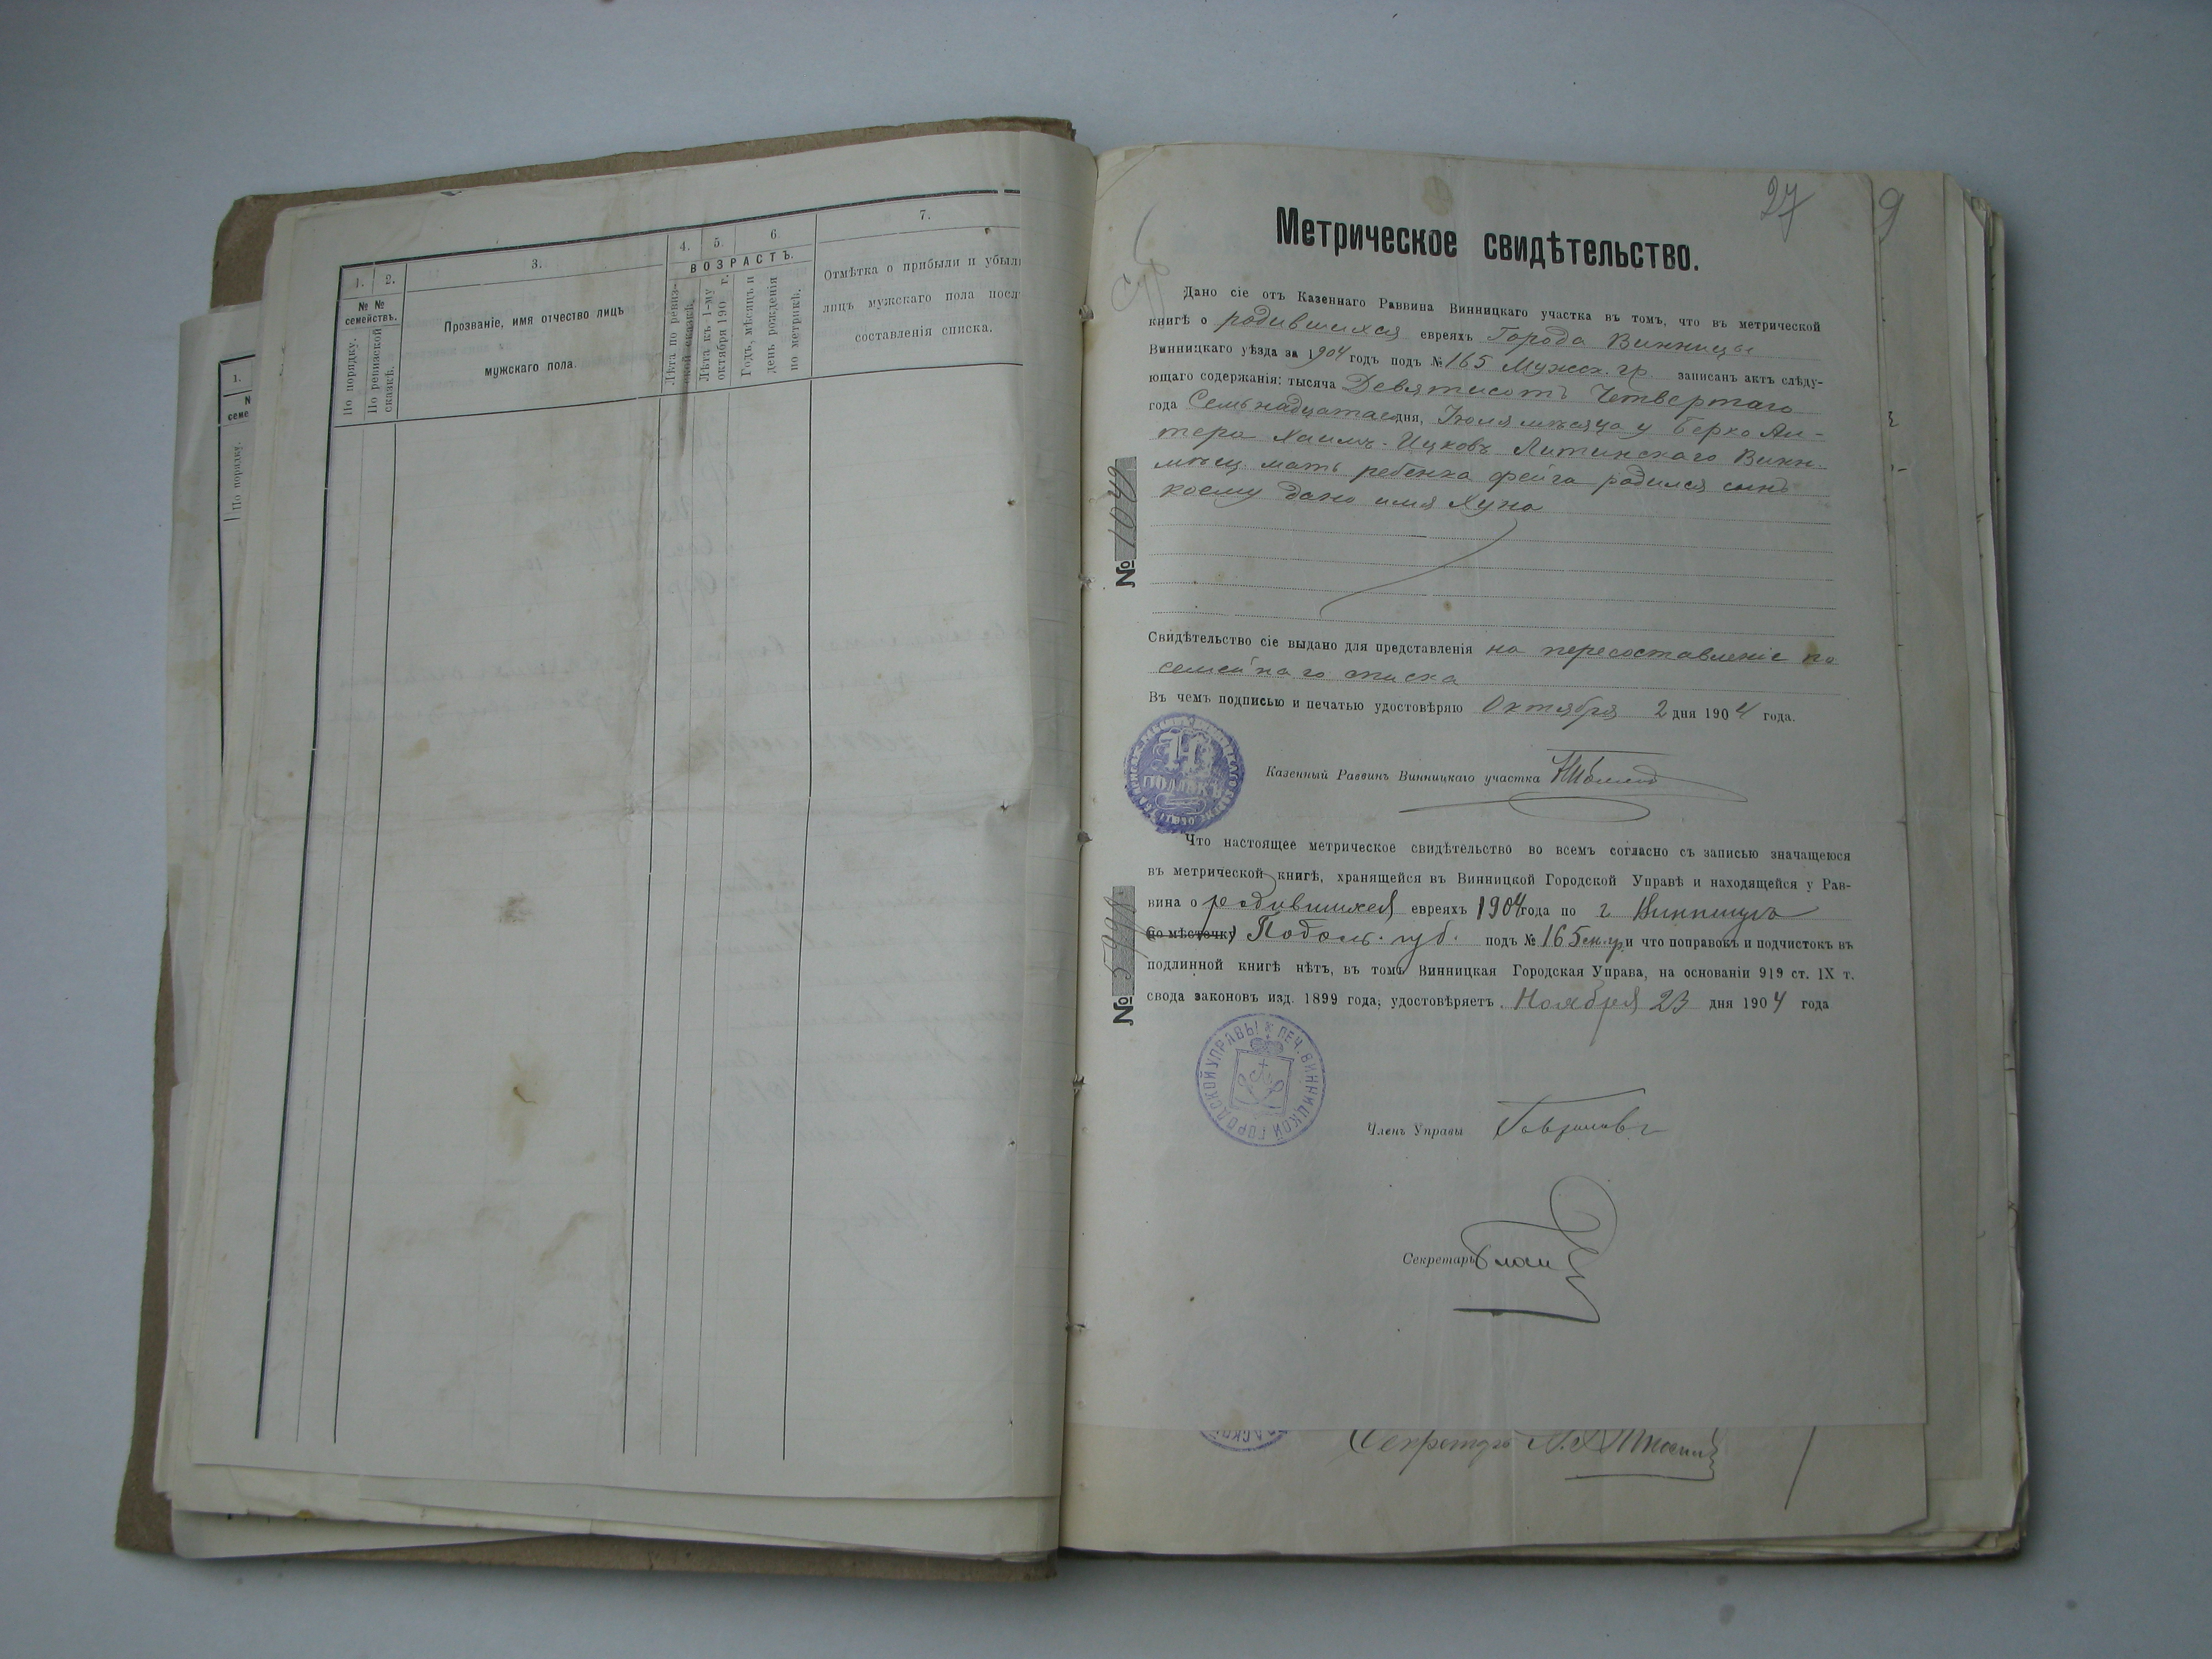 1.
2.
3.
4.
5.
6.
7.
№ № семействъ.
По порядку.
По ревизской сказкѣ.
Прозваніе, имя отчество лицъ
мужскаго пола.
ВОЗРАСТЪ.
Лѣта по ревиз-
ской сказкѣ.
Лѣта къ 1-му
октября 190 г.
Годъ, мѣсяцъ и
день рожденія
по метрикѣ.
Отмѣтка о прибыли и убыли
лицъ мужскаго пола посл
составленія списка.
1.
N
семе
По порядку.
27
9
Метрическое свидѣтельство.
Дано сіе отъ Казеннаго Раввина Винницкаго участка въ томъ, что въ метрической
книгѣ о родившихся евреяхъ Города Винницы
Винницкаго уѣзда за 1904 годъ подъ № 165 Мужск. гр. записанъ актъ слѣду-
ющаго содержанія: тысяча Девятисотъ Четвертаго
года Семьнадцатаго дня, Іюля мѣсяца у Берко Аль-
тера Хаимъ-Ицковъ Литинскаго Винн.
мѣщ. мать ребенка Фейга родился сынъ
коему дано имя Хуна
№ 1049
Свидѣтельство сіе выдано для представленія на пересоставленіе по
семейнаго списка
Въ чемъ подписью и печатью удостовѣряю Октября 2 дня 1904 года.
Казенный Раввинъ Винницкаго участка
Н
ПОЛЛАКЪ
Что настоящее метрическое свидѣтельство во всемъ согласно съ записью значащеюся
въ метрической книгѣ, хранящейся въ Винницкой Городской Управѣ и находящейся у Рав-
вина о родившихся евреяхъ 1904 года по г. Винницѣ
(по мѣстечку) Подольс. губ. подъ № 165 м. гр. и что поправокъ и подчистокъ въ
подлинной книгѣ нѣтъ, въ томъ Винницкая Городская Управа, на основаніи 919 ст. IX т.
свода законовъ изд. 1899 года, удостовѣряетъ. Ноября 23 дня 1904 года
№ 5998
ПЕЧ. ВИННИЦКОЙ ГОРОДСКОЙ УПРАВЫ
Членъ Управы
Секретарь
Секретарь